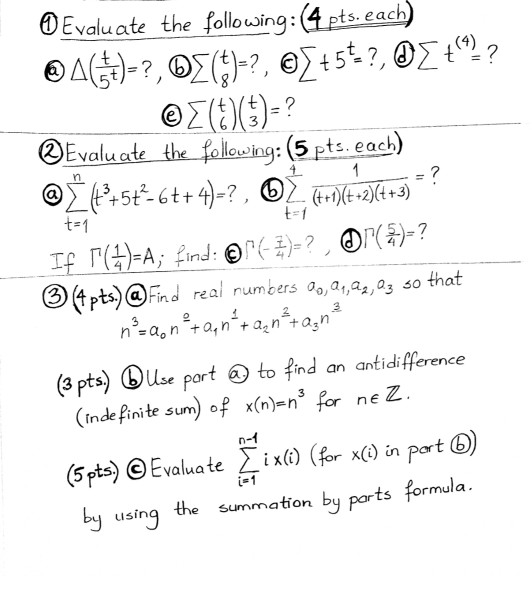 ① Evaluate the following: (4 pts. each)
ⓐ Δ(t/5^t)=?, ⓑ Σ(t 8)=?, ⓒ Σ t5^t=?, ⓓ Σ t^(4)=?
ⓔ Σ(t 6)(t 3)=?
② Evaluate the following: (5 pts. each)
ⓐ Σ_{t=1}^{n} (t³+5t²-6t+4)=?, ⓑ Σ_{t=1}^{4} 1/((t+1)(t+2)(t+3)) = ?
If Γ(1/4)=A; find: ⓒ Γ(-7/4)=?, ⓓ Γ(5/4)=?
③ (4 pts.) ⓐ Find real numbers a₀,a₁,a₂,a₃ so that
n³=a₀n^0+a₁n^1+a₂n^2+a₃n^3
(3 pts.) ⓑ Use part ⓐ to find an antidifference
(indefinite sum) of x(n)=n³ for n∈Z.
(5 pts.) ⓒ Evaluate Σ_{i=1}^{n-1} i x(i) (for x(i) in part ⓑ)
by using the summation by parts formula.